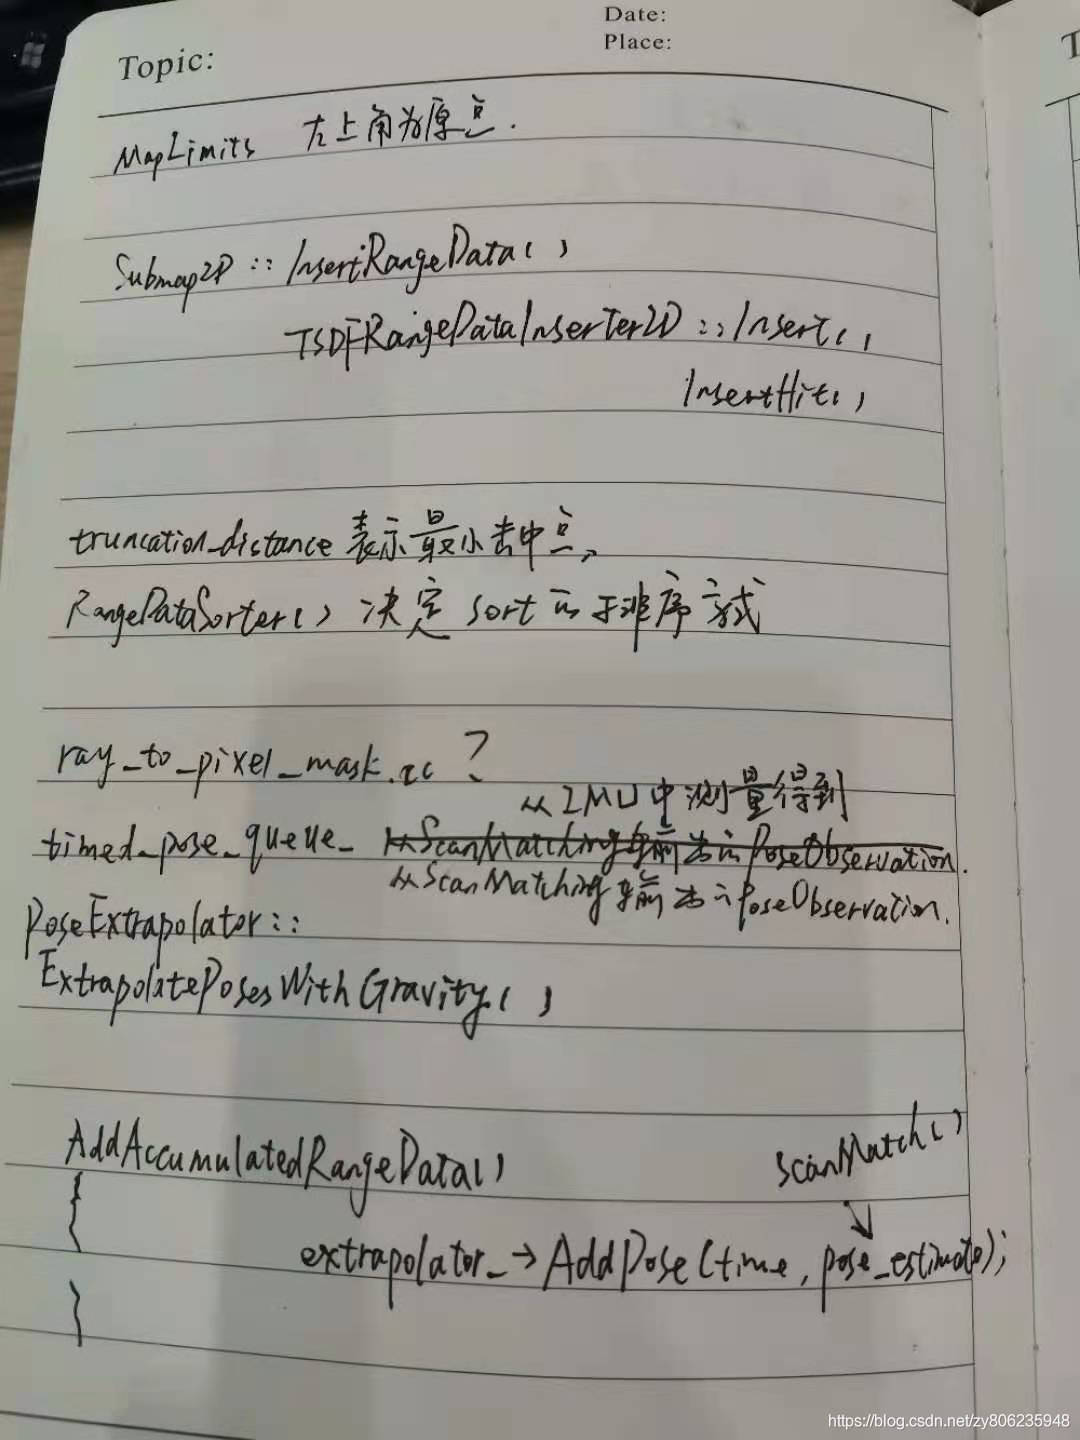 Date:
Place:
Topic:
MapLimits 左上角为原点.
Submap2D :: InsertRangeData()
TSDFRangeDataInserter2D :: Insert()
InsertHit()
truncation_distance 表示最小击中点、
RangeDataSorter() 决定 sort 的 排序方式
ray_to_pixel_mask.cc ?
从IMU中测量得到
timed_pose_queue_ 从ScanMatching 输出的PoseObservation.
从ScanMatching 输出的PoseObservation.
PoseExtrapolator::
ExtrapolatePosesWithGravity()
AddAccumulatedRangeData()
ScanMatch()
{
extrapolator_→AddPose(time, pose_estimate);
}
https://blog.csdn.net/zy806235948